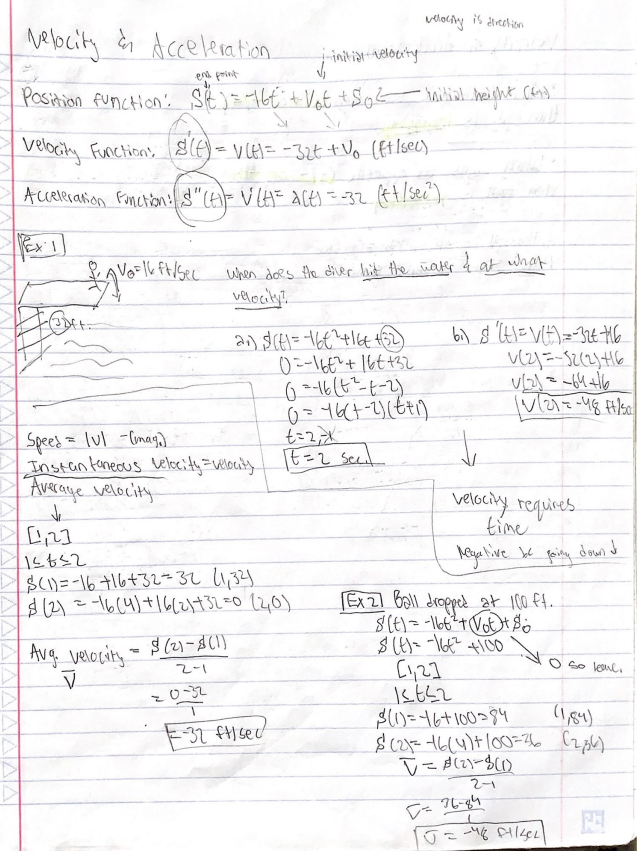 velocity is direction
Velocity & Acceleration
initial velocity
end point
Position function: S(t) = -16t² + V₀t + S₀ ← initial height (ft)
Velocity Function: S'(t) = V(t) = -32t + V₀ (ft/sec)
Acceleration Function: S"(t) = V'(t) = a(t) = -32 (ft/sec²)
Ex 1
V₀=16 ft/sec
32ft.
When does the diver hit the water & at what
velocity?
a.) S(t) = -16t² + 16t + 32
0 = -16t² + 16t + 32
0 = -16(t² - t - 2)
0 = -16(t-2)(t+1)
t = 2, -1
t = 2 sec.
b.) S'(t) = V(t) = -32t + 16
V(2) = -32(2) + 16
V(2) = -64 + 16
V(2) = -48 ft/sec
velocity requires
time
Negative bc going down ↓
Speed = |V| - (mag.)
Instantaneous velocity = velocity
Average velocity
↓
[1,2]
1 ≤ t ≤ 2
S(1) = -16 + 16 + 32 = 32 (1,32)
S(2) = -16(4) + 16(2) + 32 = 0 (2,0)
Avg. velocity = S(2) - S(1)
V̄ 2-1
= 0-32
1
= -32 ft/sec
Ex 2 Ball dropped at 100 ft.
S(t) = -16t² + V₀t + S₀
S(t) = -16t² + 100
0 so leave.
[1,2]
1 ≤ t ≤ 2
S(1) = -16 + 100 = 84 (1,84)
S(2) = -16(4) + 100 = 36 (2,36)
V̄ = S(2) - S(1)
2-1
V̄ = 36-84
1
V̄ = -48 ft/sec